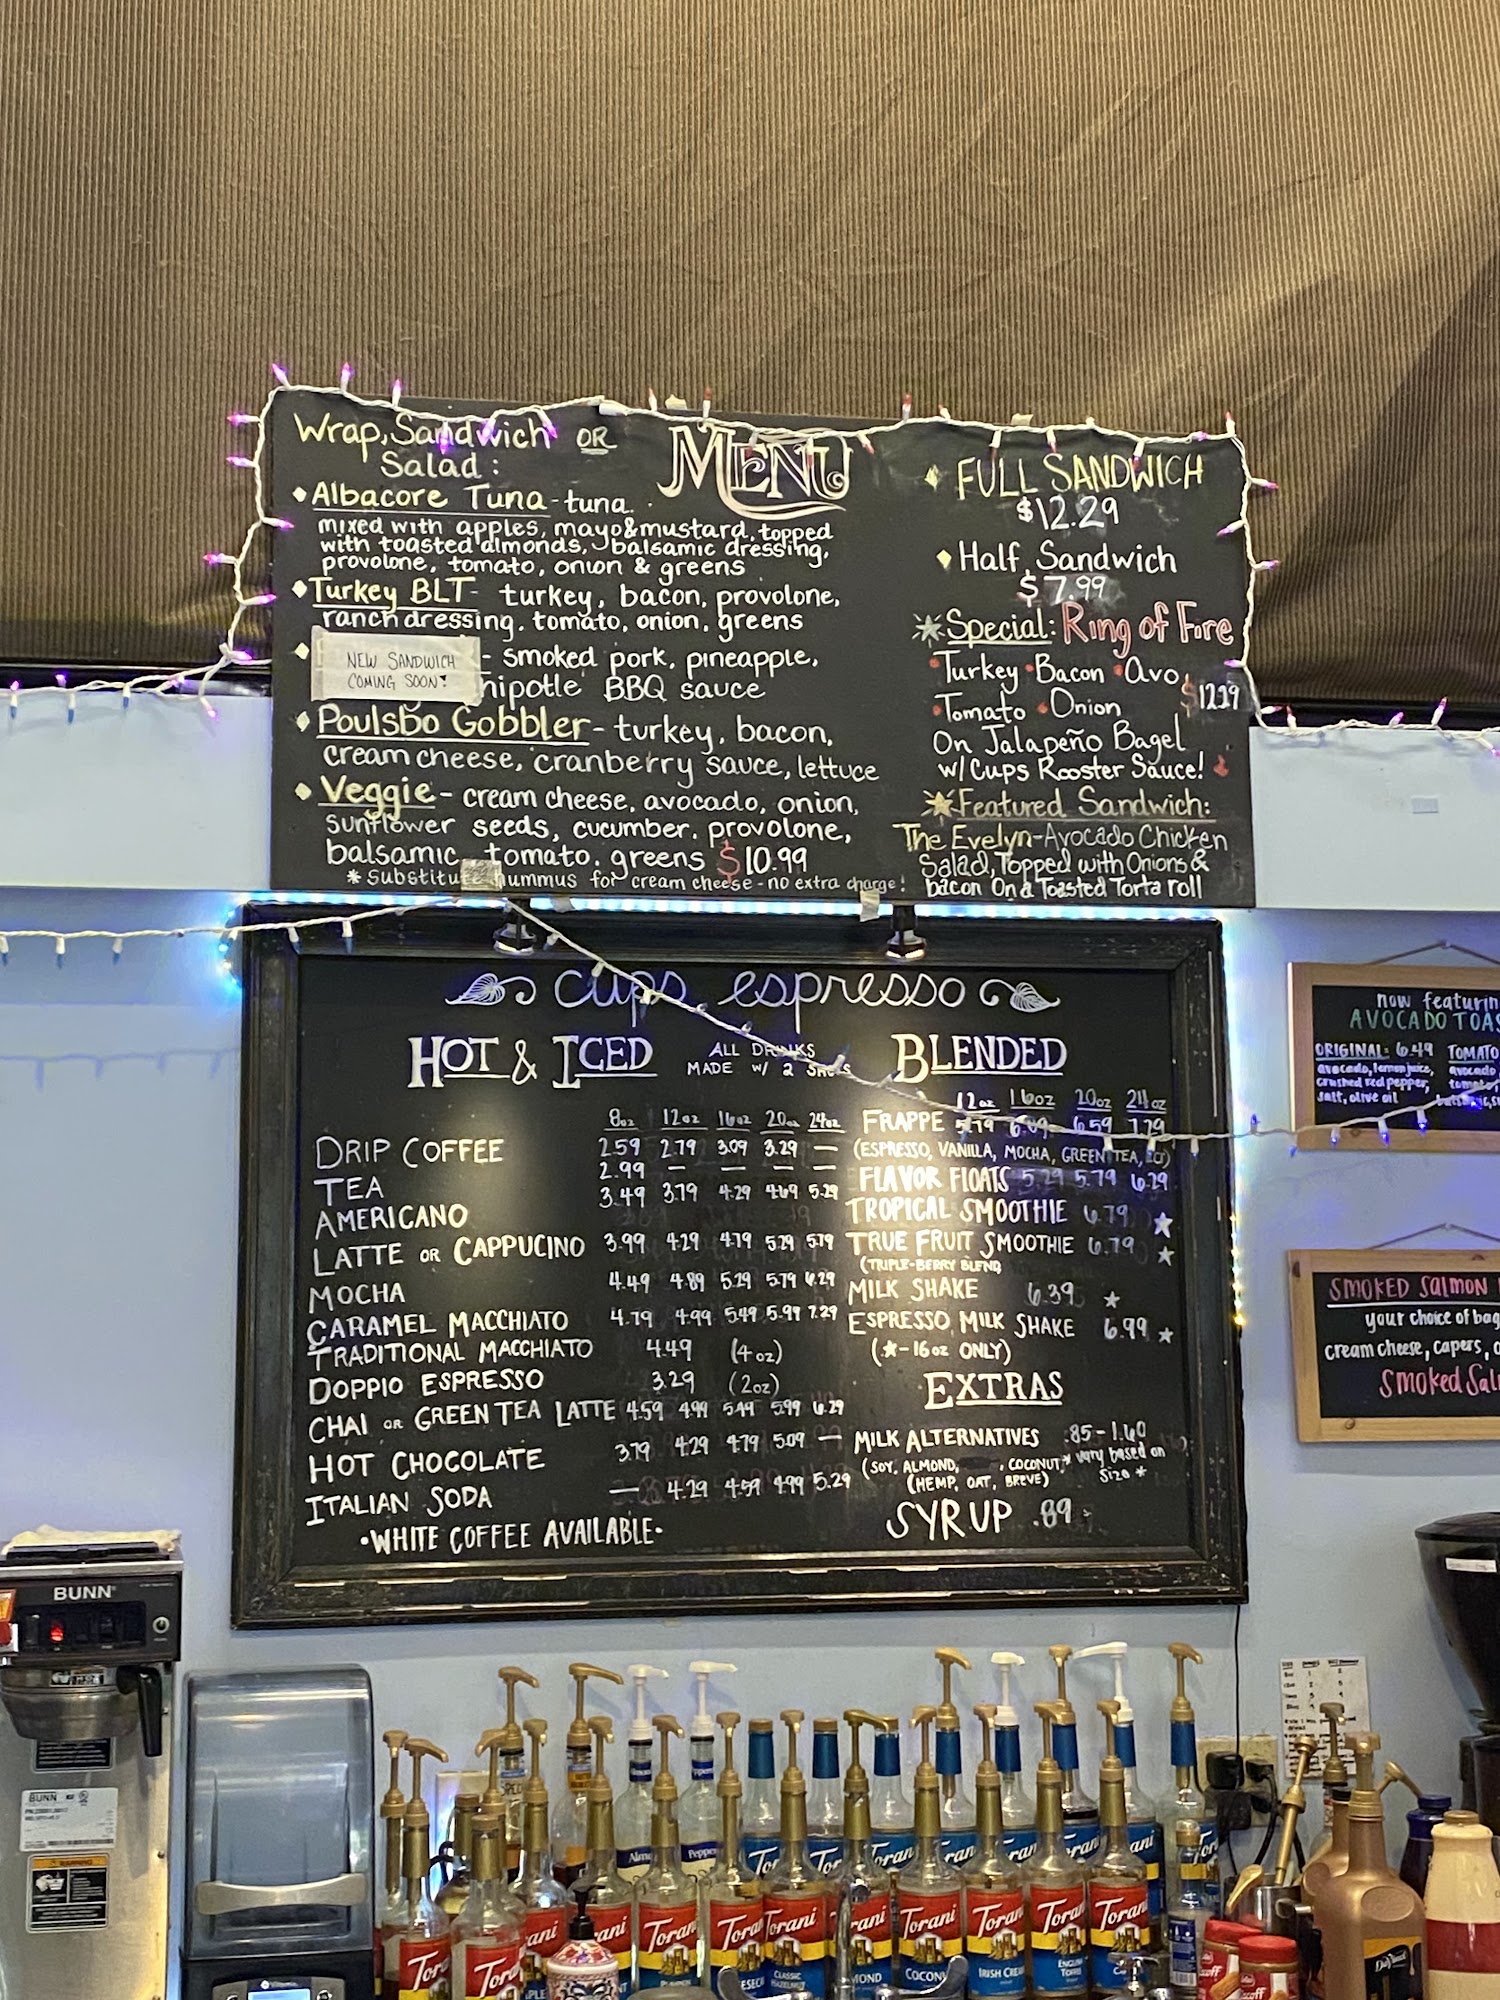 Wrap, Sandwich OR
Salad:
Albacore Tuna - tuna
mixed with apples, mayo & mustard, topped
with toasted almonds, balsamic dressing,
provolone, tomato, onion & greens
Turkey BLT - turkey, bacon, provolone,
ranch dressing, tomato, onion, greens
NEW SANDWICH
COMING SOON!
- smoked pork, pineapple,
hipotle BBQ sauce
Poulsbo Gobbler - turkey, bacon,
cream cheese, cranberry sauce, lettuce
Veggie - cream cheese, avocado, onion,
sunflower seeds, cucumber, provolone,
balsamic, tomato, greens $10.99
* substitute hummus for cream cheese - no extra charge!
MENU
FULL SANDWICH
$12.29
Half Sandwich
$7.99
Special: Ring of Fire
Turkey • Bacon • Avo
• Tomato • Onion $12.19
On Jalapeño Bagel
w/ Cups Rooster Sauce!
Featured Sandwich:
The Evelyn - Avocado Chicken
Salad, Topped with Onions &
bacon On a Toasted Torta roll
cups espresso
HOT & ICED
ALL DRINKS
MADE W/ 2 SHOTS
8oz 12oz 16oz 20oz 24oz
DRIP COFFEE 2.59 2.79 3.09 3.29 —
TEA 2.99 — — — —
AMERICANO 3.49 3.79 4.29 4.69 5.29
LATTE OR CAPPUCINO 3.99 4.29 4.79 5.29 5.79
MOCHA 4.49 4.89 5.29 5.79 6.29
CARAMEL MACCHIATO 4.79 4.99 5.49 5.99 7.29
TRADITIONAL MACCHIATO 4.49 (4oz)
DOPPIO ESPRESSO 3.29 (2oz)
CHAI OR GREEN TEA LATTE 4.59 4.99 5.49 5.99 6.29
HOT CHOCOLATE 3.79 4.29 4.79 5.09 —
ITALIAN SODA — 4.29 4.59 4.99 5.29
• WHITE COFFEE AVAILABLE •
BLENDED
12oz 16oz 20oz 24oz
FRAPPE 5.79 6.09 6.59 7.29
(ESPRESSO, VANILLA, MOCHA, GREEN TEA, ECT)
FLAVOR FLOATS 5.29 5.79 6.29
TROPICAL SMOOTHIE 6.79 ★
TRUE FRUIT SMOOTHIE 6.79 ★
(TRIPLE-BERRY BLEND)
MILK SHAKE 6.39 ★
ESPRESSO MILK SHAKE 6.99 ★
(★ - 16oz ONLY)
EXTRAS
MILK ALTERNATIVES .85 - 1.60
(SOY, ALMOND, , COCONUT,
(HEMP, OAT, BREVE)
* vary based on
size *
SYRUP .89
now featurin
AVOCADO TOAS
ORIGINAL: 6.49
avocado, lemon juice,
crushed red pepper,
salt, olive oil
TOMATO
avocado
SMOKED SALMON
your choice of bag
cream cheese, capers,
Smoked Sal
BUNN
BUNN
Torani
Torani
Torani
Torani
Torani
Torani
Torani
Torani
Torani
CLASSIC
HAZELNUT
MOND
COCONU
IRISH CREA
ENGLISH
TOFFEE
DaVinci